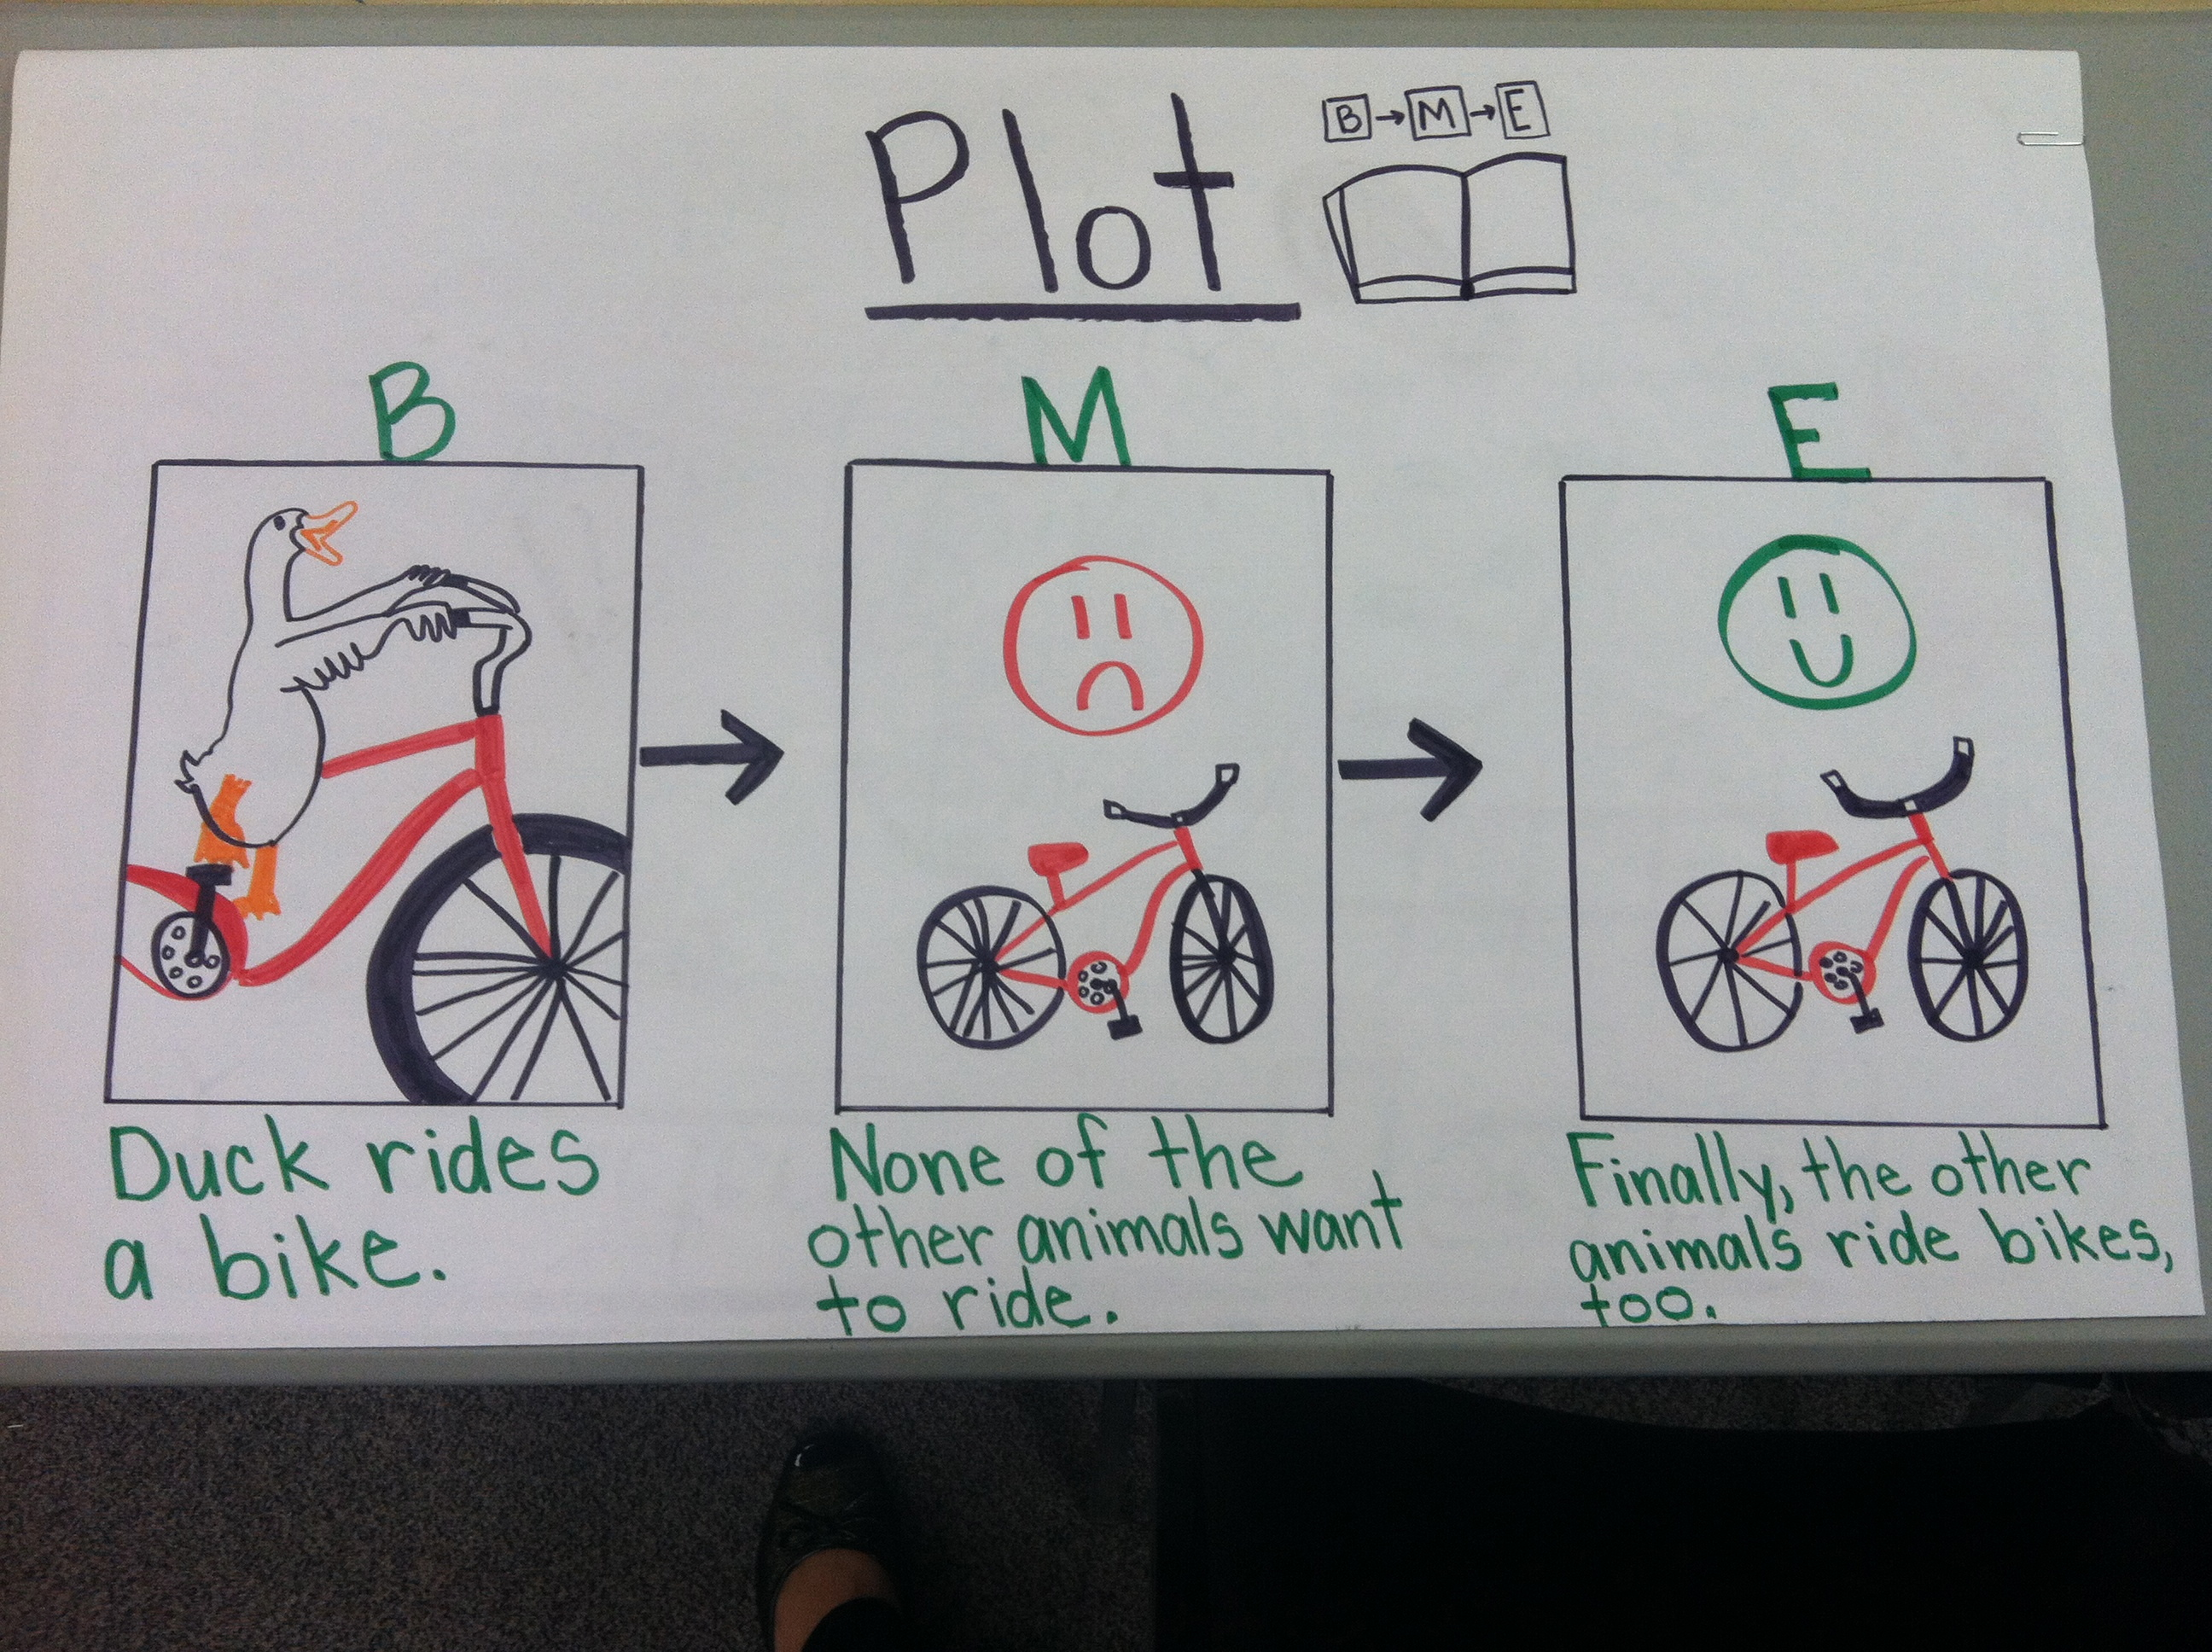 Plot
B → M → E
B
M
E
Duck rides
a bike.
None of the
other animals want
to ride.
Finally, the other
animals ride bikes,
too.